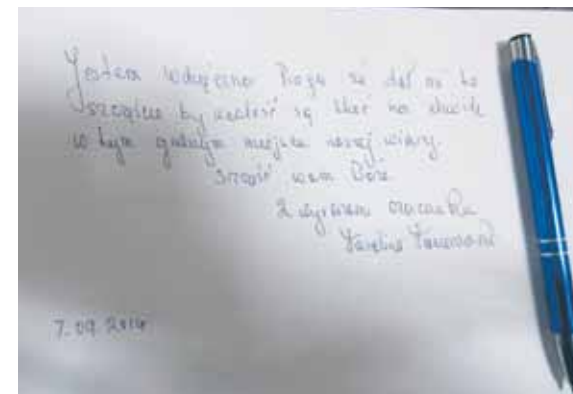 Jestem wdzięczna Bogu że dał mi to
szczęście by znaleźć się choć na chwilę
w tym miejscu naszej wiary
Szczęść wam Boże
Z wyrazem szacunku
7.09.2014